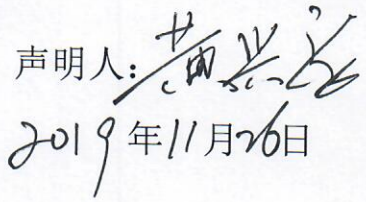 声明人：黄兴
2019年11月26日